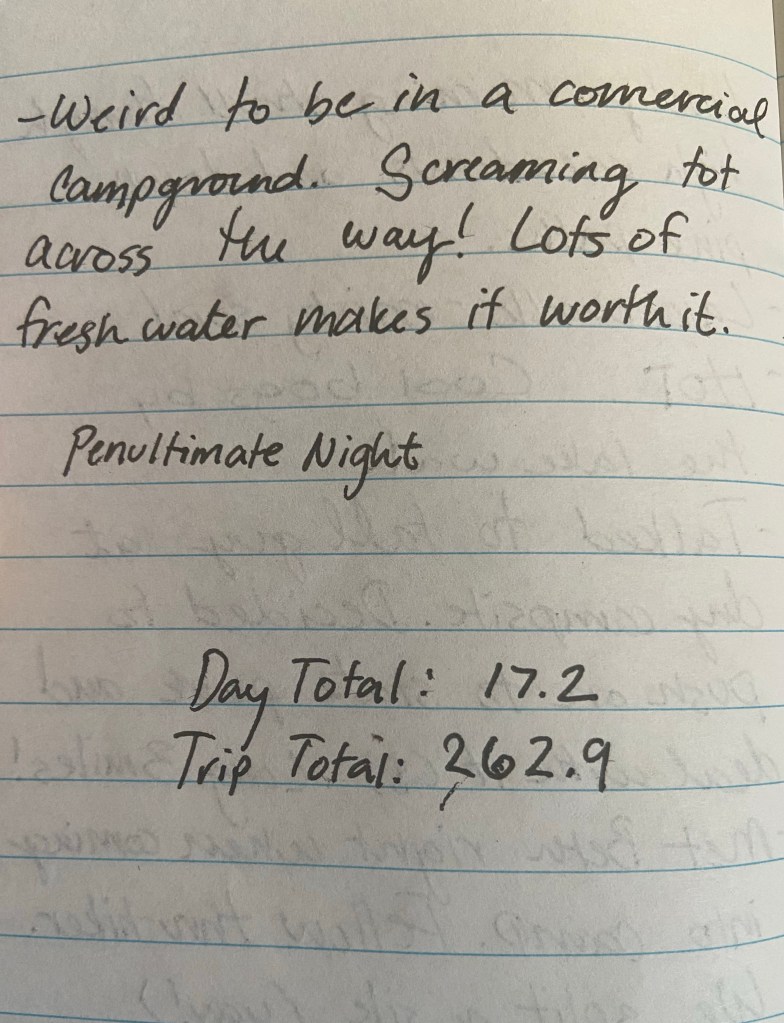 -Weird to be in a comercial
Campground. Screaming tot
across the way! Lots of
fresh water makes it worth it.
Penultimate Night
Day Total: 17.2
Trip Total: 262.9